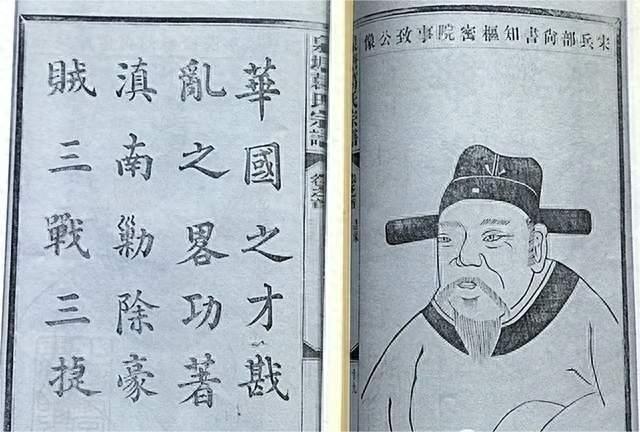 宋兵部尚書知樞密院事致公像
華國之才戡
亂之畧功著
滇南勦除豪
賊三戰三捷
氏宗譜
卷之首